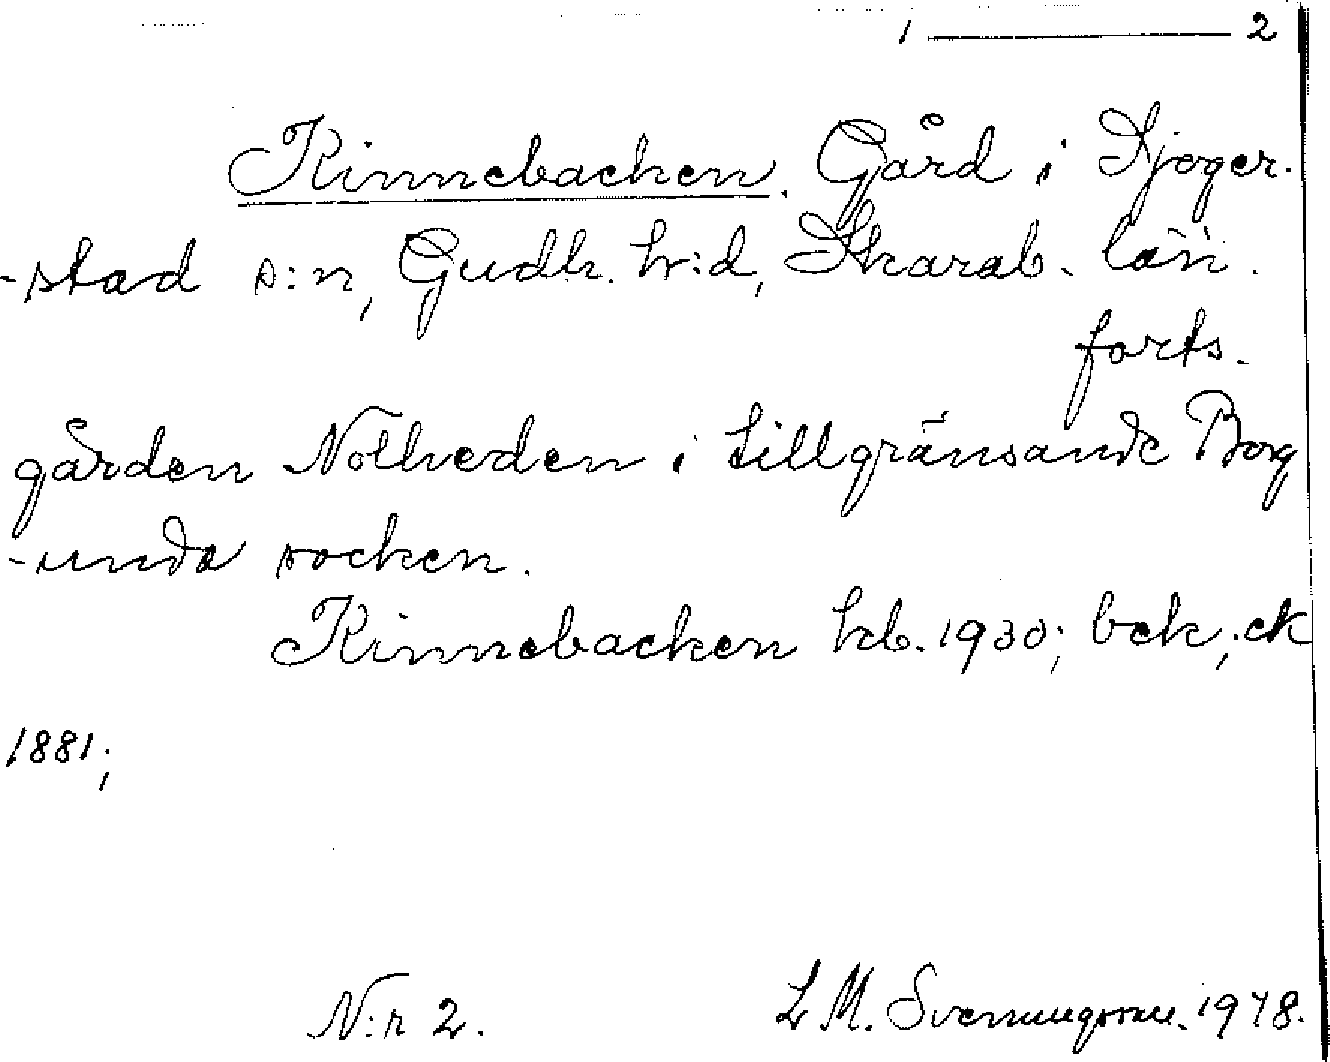 1 ——— 2
Kinnebacken. Gård i Sjoger-
-stad s:n, Gudh. hr:d, Skarab. län.
forts.
gården Nolheden i tillgränsande Borg
-unda socken.
Kinnebacken hb. 1930; bek; ek
1881;
N:r 2. L M. Svenungsson. 1978.